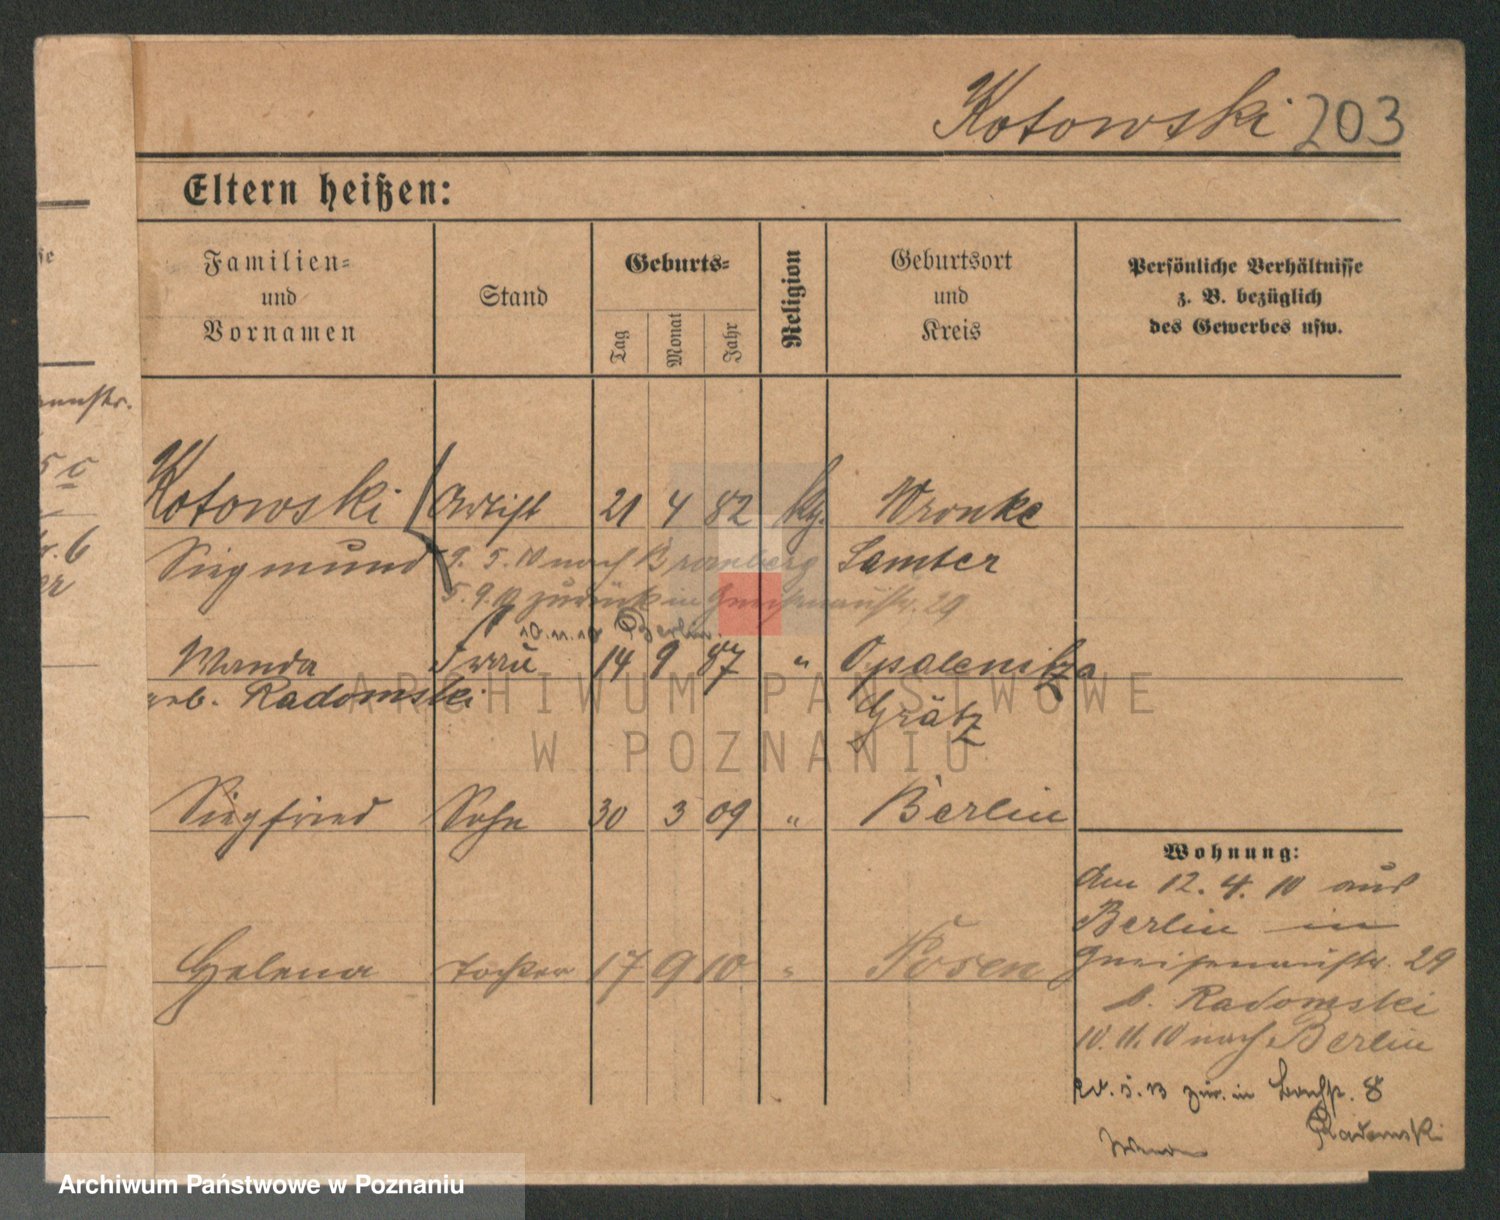 Kotowski 203
Eltern heißen:
Familien=
und
Vornamen
Stand
Geburts=
Tag
Monat
Jahr
Religion
Geburtsort
und
Kreis
Persönliche Verhältnisse
z. B. bezüglich
des Gewerbes usw.
Kotowski Artist 21 4 82 Wronke
Siegmund 9. 5. 10 nach Bromberg Samter
5. 9. 10 zurück in Gneisenaustr. 29
10. 11. 10 Berlin.
Wanda Frau 14 9 87 " Opalenitza
geb. Radomski Grätz
Siegfried Sohn 30 3 09 " Berlin
Helena Tochter 17 9 10 " Posen
Wohnung:
Am 12. 4. 10 aus
Berlin in
Gneisenaustr. 29
b. Radomski
10. 11. 10 nach Berlin
zur. in 8
Radomski
ARCHIWUM PAŃSTWOWE
W POZNANIU
Archiwum Państwowe w Poznaniu